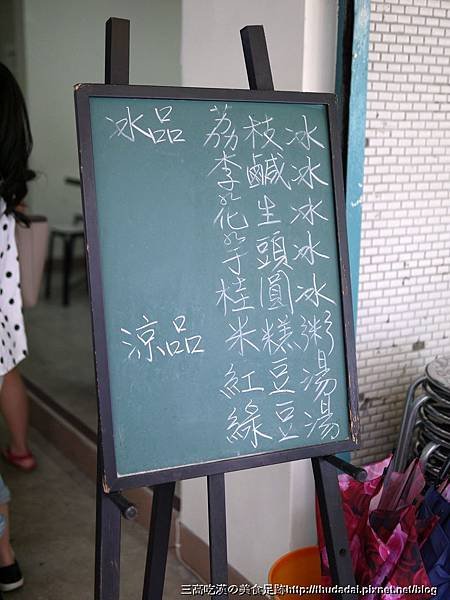 冰品 荔枝冰
李鹹冰
花生冰
芋頭冰
桂圓冰
涼品 米糕粥
紅豆湯
綠豆湯
三高吃漢の美食足跡http://thudadai.pixnet.net/blog